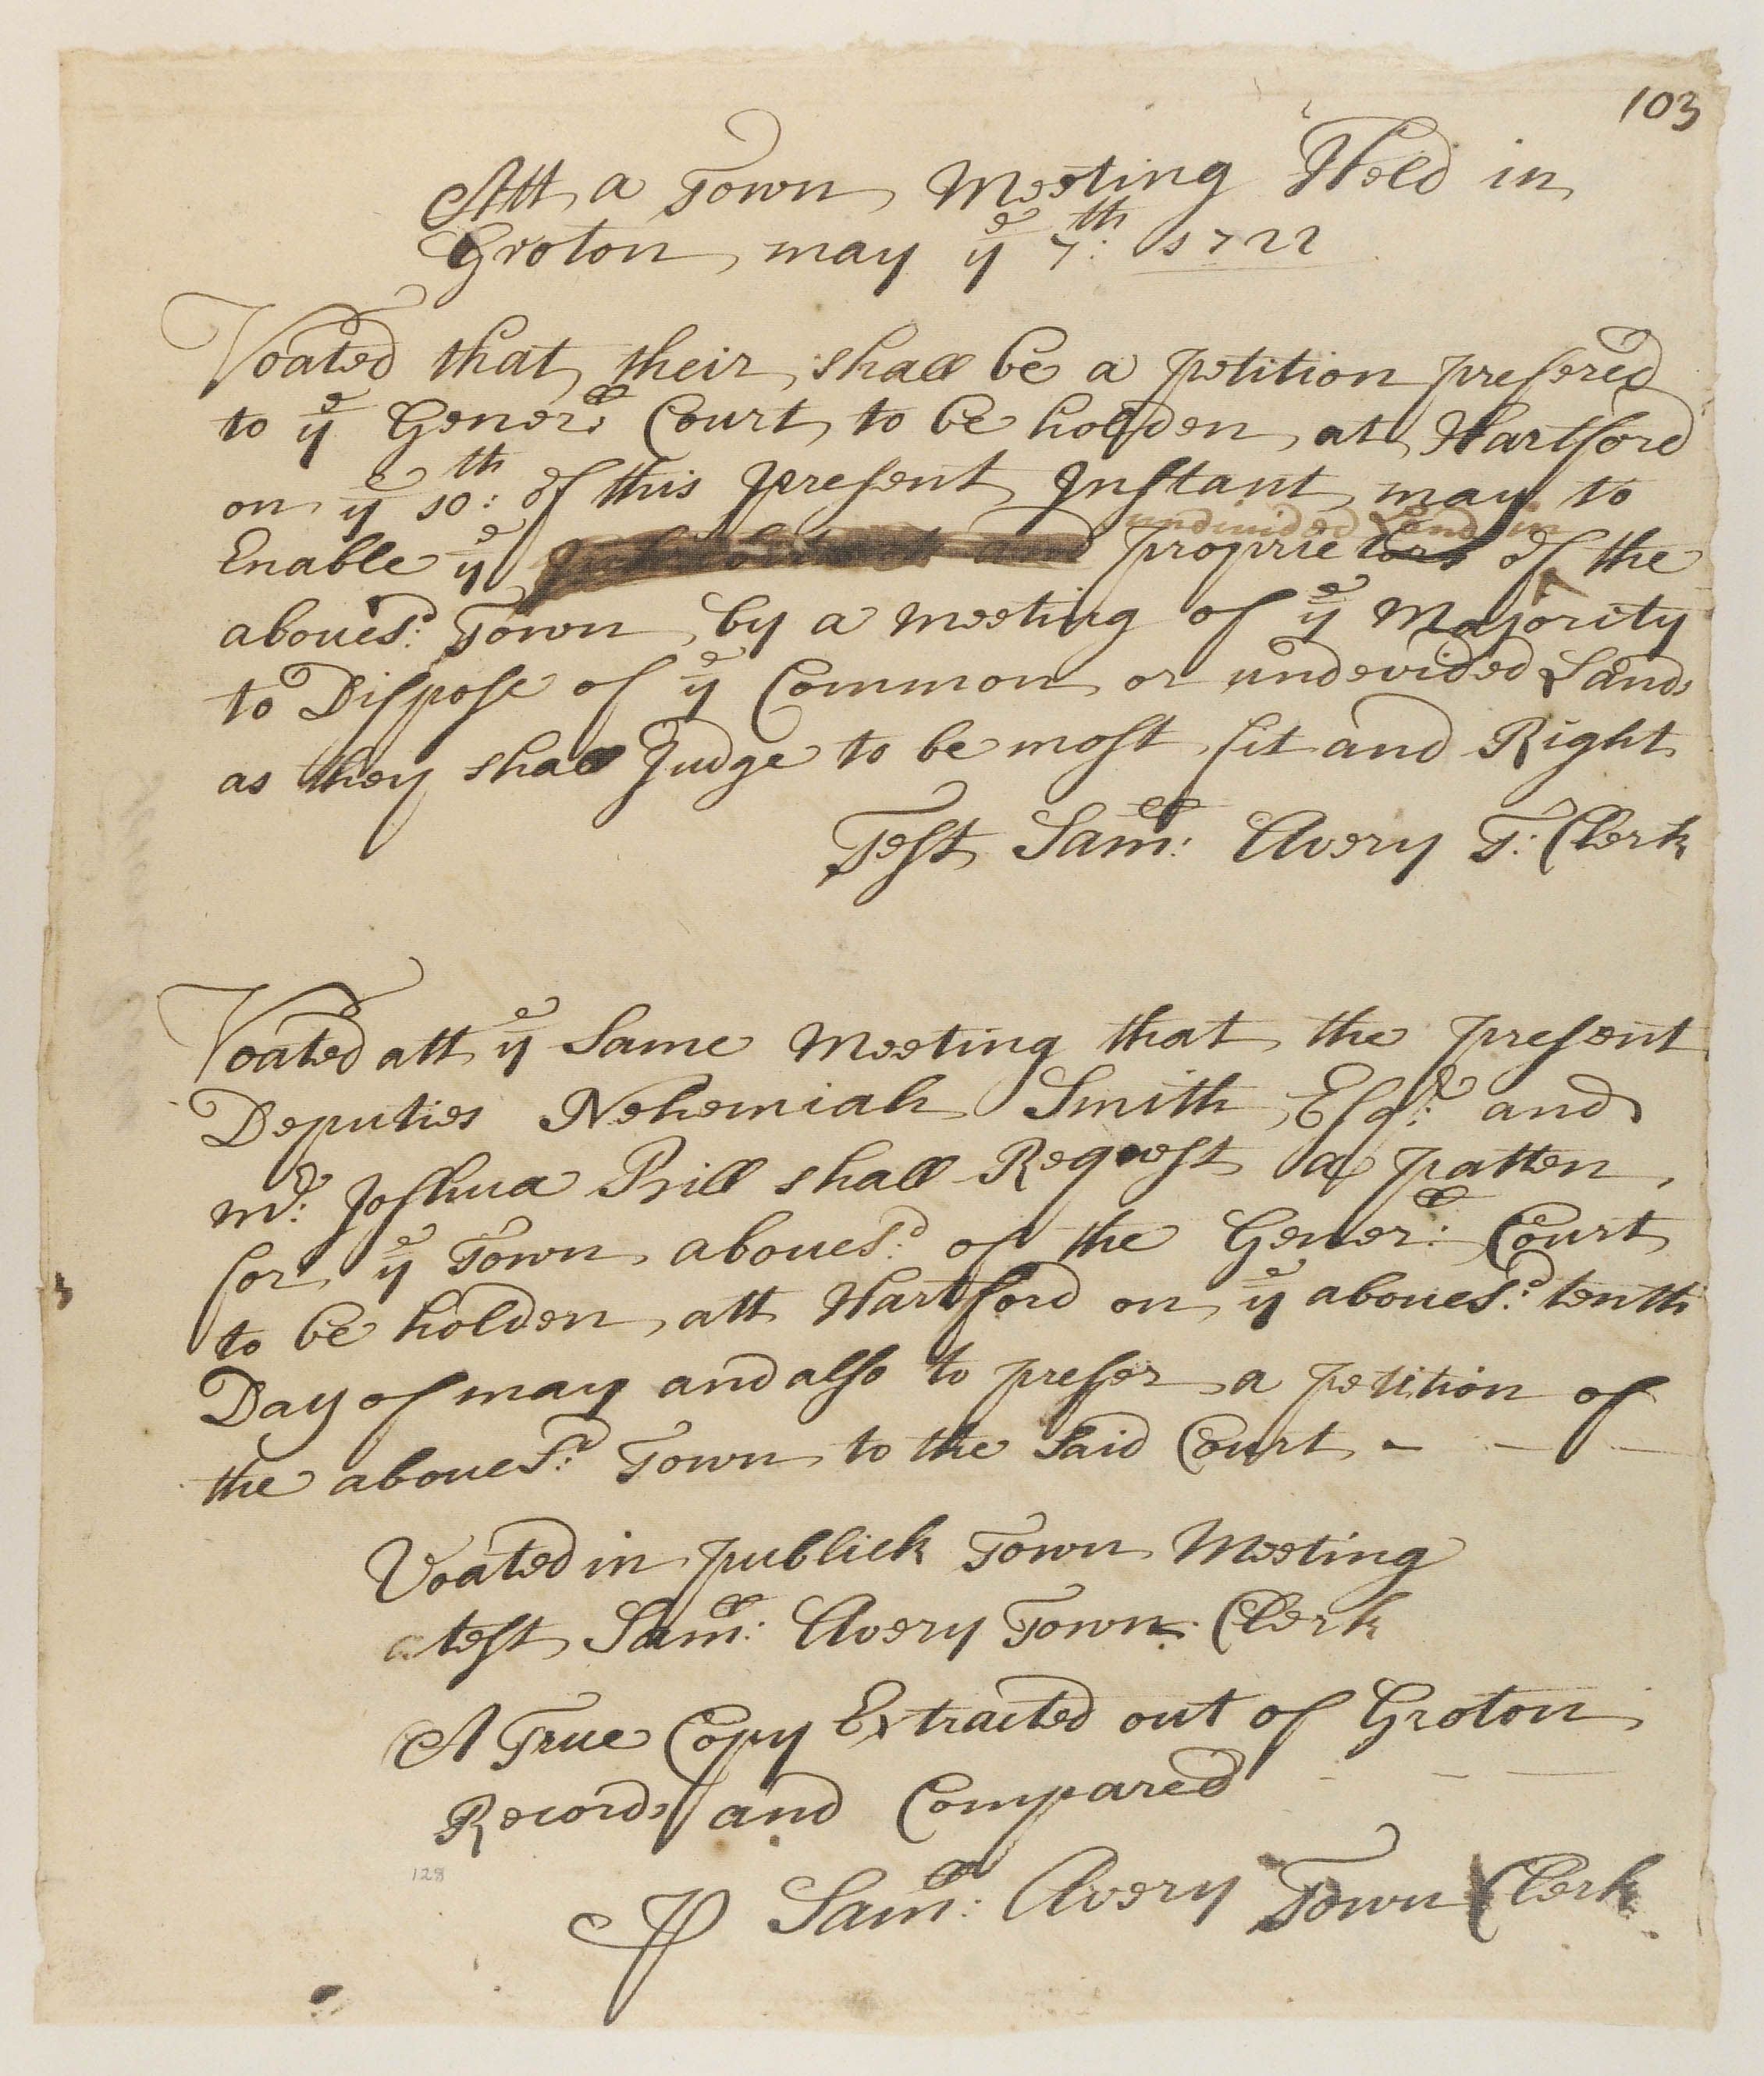 103
Att a Town Meeting Held in
Groton may yᵉ 7ᵗʰ: 1722
Voated that their shall be a petition prefered
to yᵉ Generˡˡ: Court to be holden att Hartford
on yᵉ 10ᵗʰ: of this present Instant may to
undivided Land in
Enable yᵉ and proprietors of the
abouesᵈ: Town by a meeting of yᵉ Majority
to Dispose of yᵉ Common or undevided Lands
as they shall Judge to be most fit and Right
Test Samˡˡ: Avery T: Clerk
Voated att yᵉ Same Meeting that the present
Deputies Nehemiah Smith Esqʳ: and
mʳ: Joshua Bill shall Request a patten
for yᵉ Town abouesᵈ: of the Generˡˡ: Court
to be holden att Hartford on yᵉ abouesᵈ: tenth
Day of may and also to prefer a petition of
the abouesᵈ: Town to the Said Court
Voated in publick Town Meeting
atest Samˡˡ: Avery Town Clerk
A True Copy Extracted out of Groton
Records and Compared
128
Samˡˡ: Avery Town Clerk